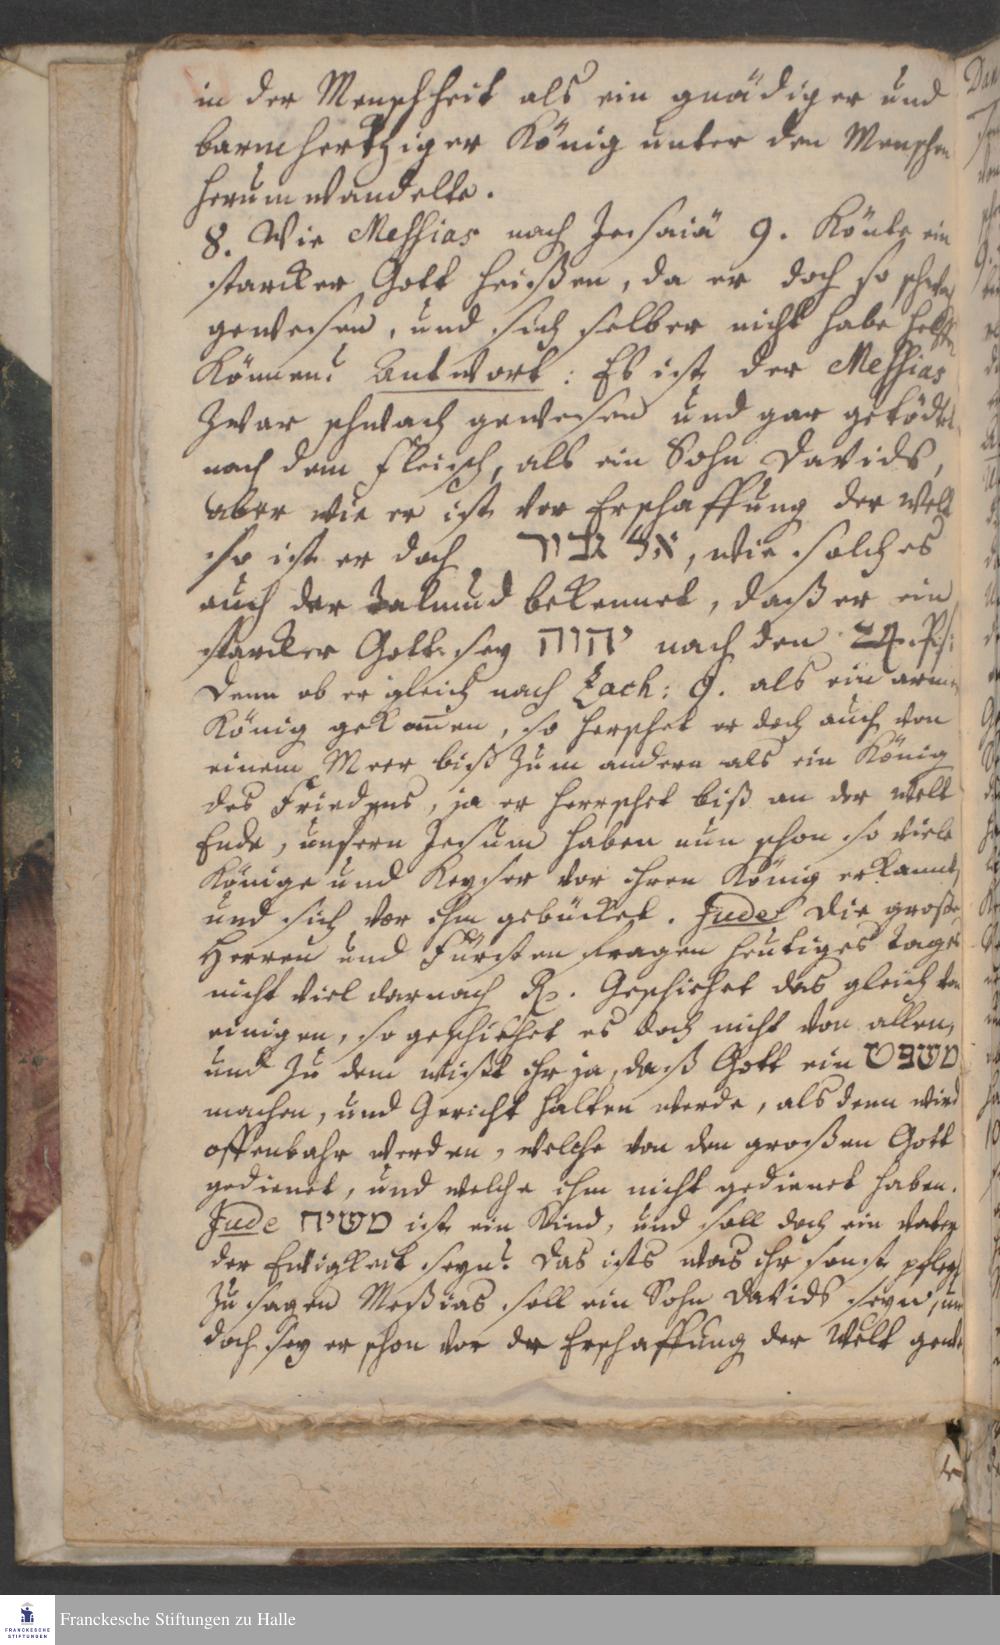 in der Menschheit als ein gnädiger und
barmhertziger König unter den Menschen
herum wandelte.
8. Wie Messias nach Jesaiä 9. könte ein
starcker Gott heißen, da er doch so schwach
gewesen, und sich selber nicht habe helffen
können? Antwort: Es ist der Messias
zwar schwach gewesen und gar getödtet
nach dem Fleisch, als ein Sohn Davids,
aber wie er ist vor Erschaffung der Welt
so ist er doch אל גבור, wie solches
auch der Talmud bekennet, daß er ein
starcker Gott sey יהוה nach den 24. Ps:
Denn ob er gleich nach Zach: 9. als ein armer
König gekom̄en, so herschet er doch auch von
einem Meer biß zum andern als ein König
des Friedens, ja er herrschet biß an der Welt
Ende, unsern Jesum haben nun schon so viele
Könige und Keyser vor ihren König erkannt,
und sich vor ihm gebücket. Jude Die große
Herren und Fürsten fragen heutiges Tages
nicht viel darnach R. Geschiehet das gleich von
einigen, so geschiehet es doch nicht von allen,
und zu dem wißt ihr ja, daß Gott ein משפט
machen, und Gericht halten werde, als denn wird
offenbahr werden, welche von den großen Gott
gedienet, und welche ihm nicht gedienet haben.
Jude משיח ist ein Kind, und soll doch ein Vater
der Ewigkeit seyn? Das ists was ihr sonst pfleget
zu sagen Meßias soll ein Sohn Davids seyn, und
doch sey er schon vor der Erschaffung der Welt
Franckesche Stiftungen zu Halle
FRANCKESCHE
STIFTUNGEN